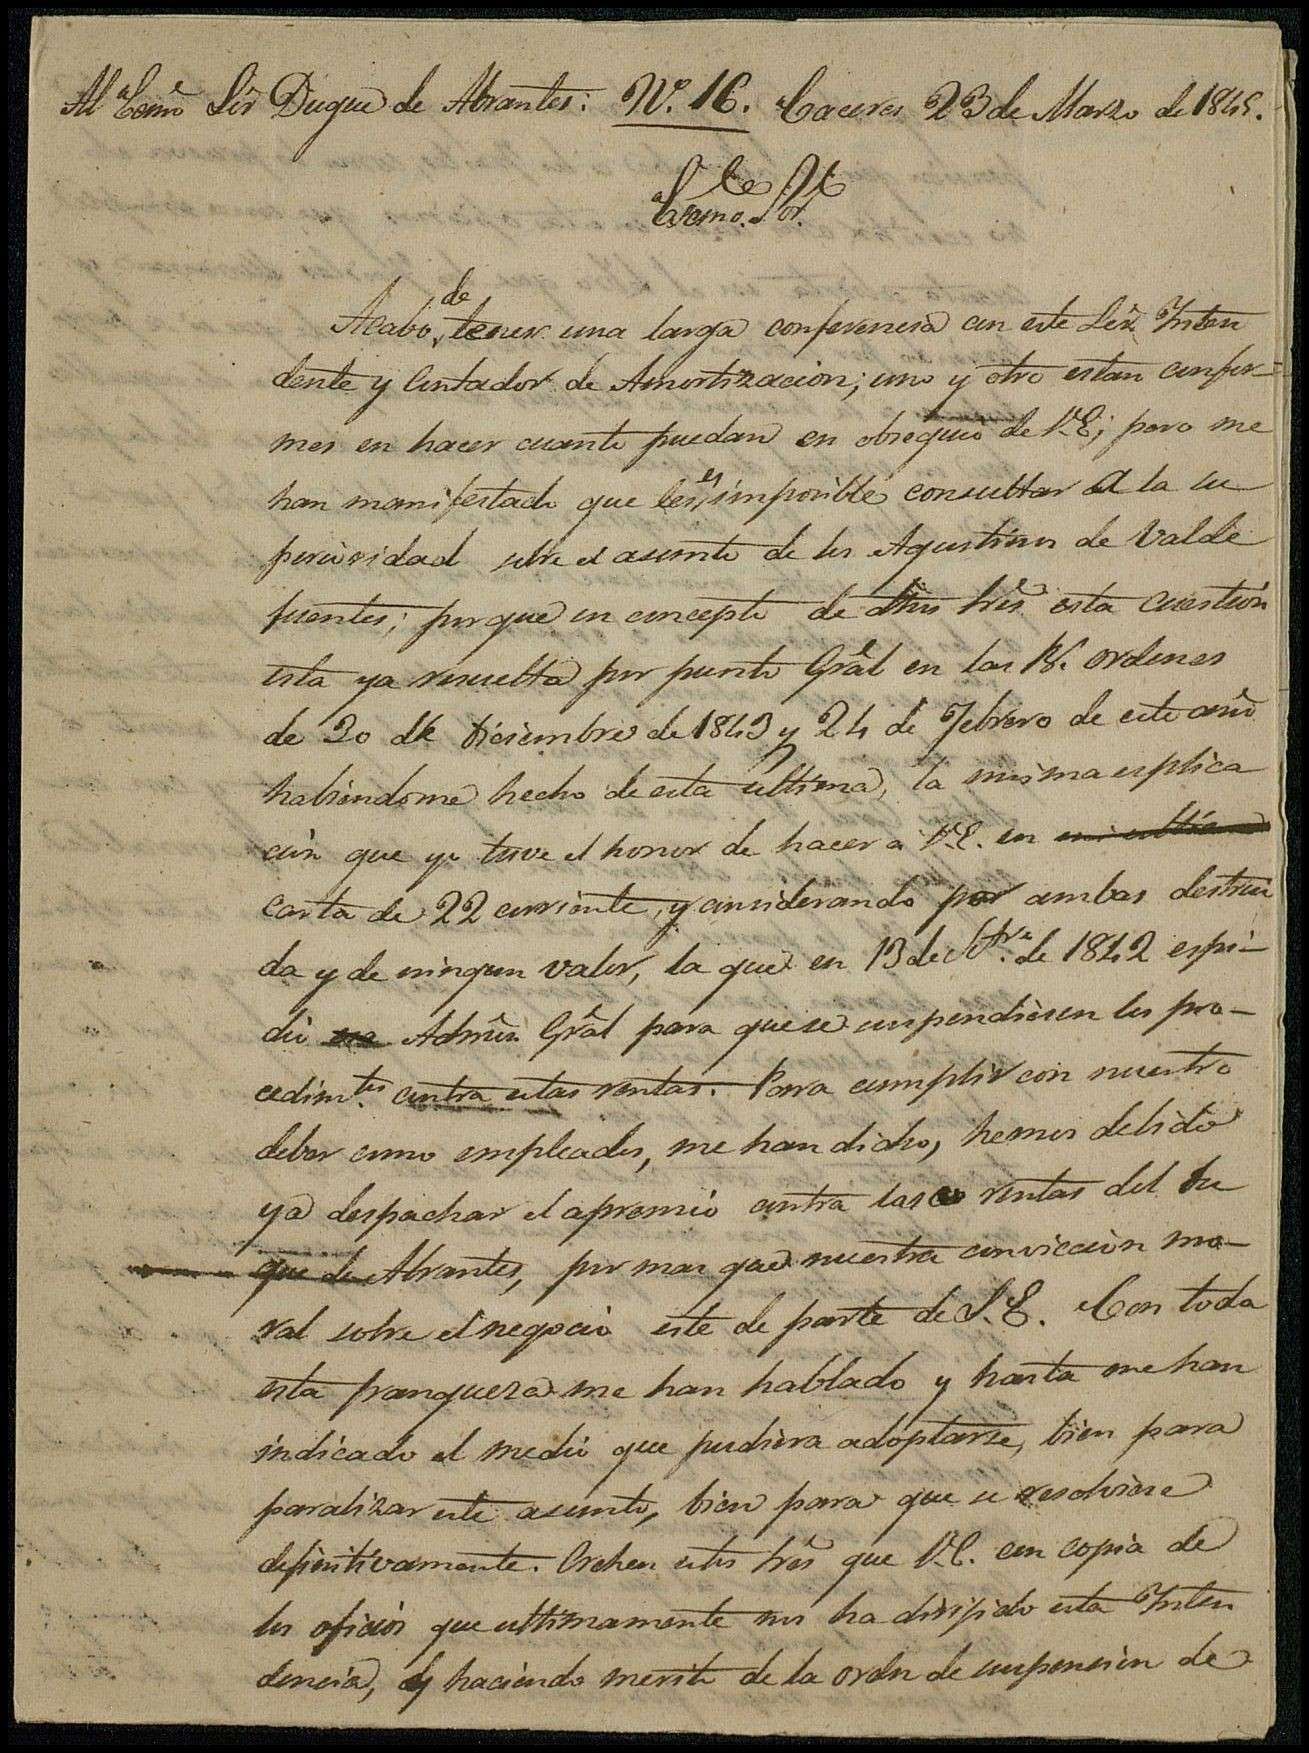 Al Excmo Sór Duque de Abrantes: Nº. 16. Caceres 23 de Marzo de 1845.
Excmo. Sor.
de
Acabo tener una larga conferencia con este Sór Inten
dente y Contador de Amortizacion; uno y otro estan confor=
mes en hacer cuanto puedan en obsequio de V.E; pero me
han manifestado que les es imposible consultar a la su
perioridad sobre el asunto de los Agustinos de Valde
fuentes; porque en concepto de dhos Sres esta cuestion
esta ya resuelta por punto Grâl en las Rs. ordenes
de 20 de Diciembre de 1843 y 24 de Febrero de este año
habiendome hecho de esta ultima, la misma esplica
cion que yo tuve el honor de hacer a V.E. en mi ultima
carta de 22 corriente, y considerando por ambas destrui
da y de ningun valor, la que en 13 de Stre. de 1842 espi-
dio Admon Grâl para que se suspendiesen los pro-
cedimtos contra estas rentas. Para cumplir con nuestro
deber como empleados, me han dicho, hemos debido
ya despachar el apremio contra las rentas del Du
que de Abrantes, por mas que nuestra conviccion mo-
ral sobre el negocio este de parte de S.E. Con toda
esta franqueza me han hablado y hasta me han
indicado el medio que pudiera adoptarse, bien para
paralizar este asunto, bien para que se resolviese
definitivamente. Crehen estos Sres que V.E. con copia de
los oficios que ultimamente nos ha dirigido esta Inten
dencia, y haciendo merito de la orden de suspension de